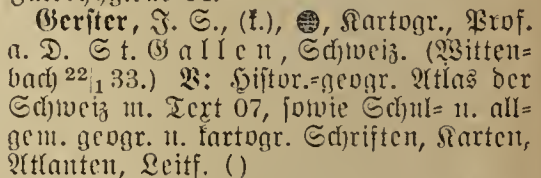 Gerster, J. S., (k.), Kartogr., Prof.
a. D. St. Gallen, Schweiz. (Witten-
bach 22|1 33.) V: Histor.=geogr. Atlas der
Schweiz m. Text 07, sowie Schul= u. all-
gem. geogr. u. kartogr. Schriften, Karten,
Atlanten, Leitf. ()